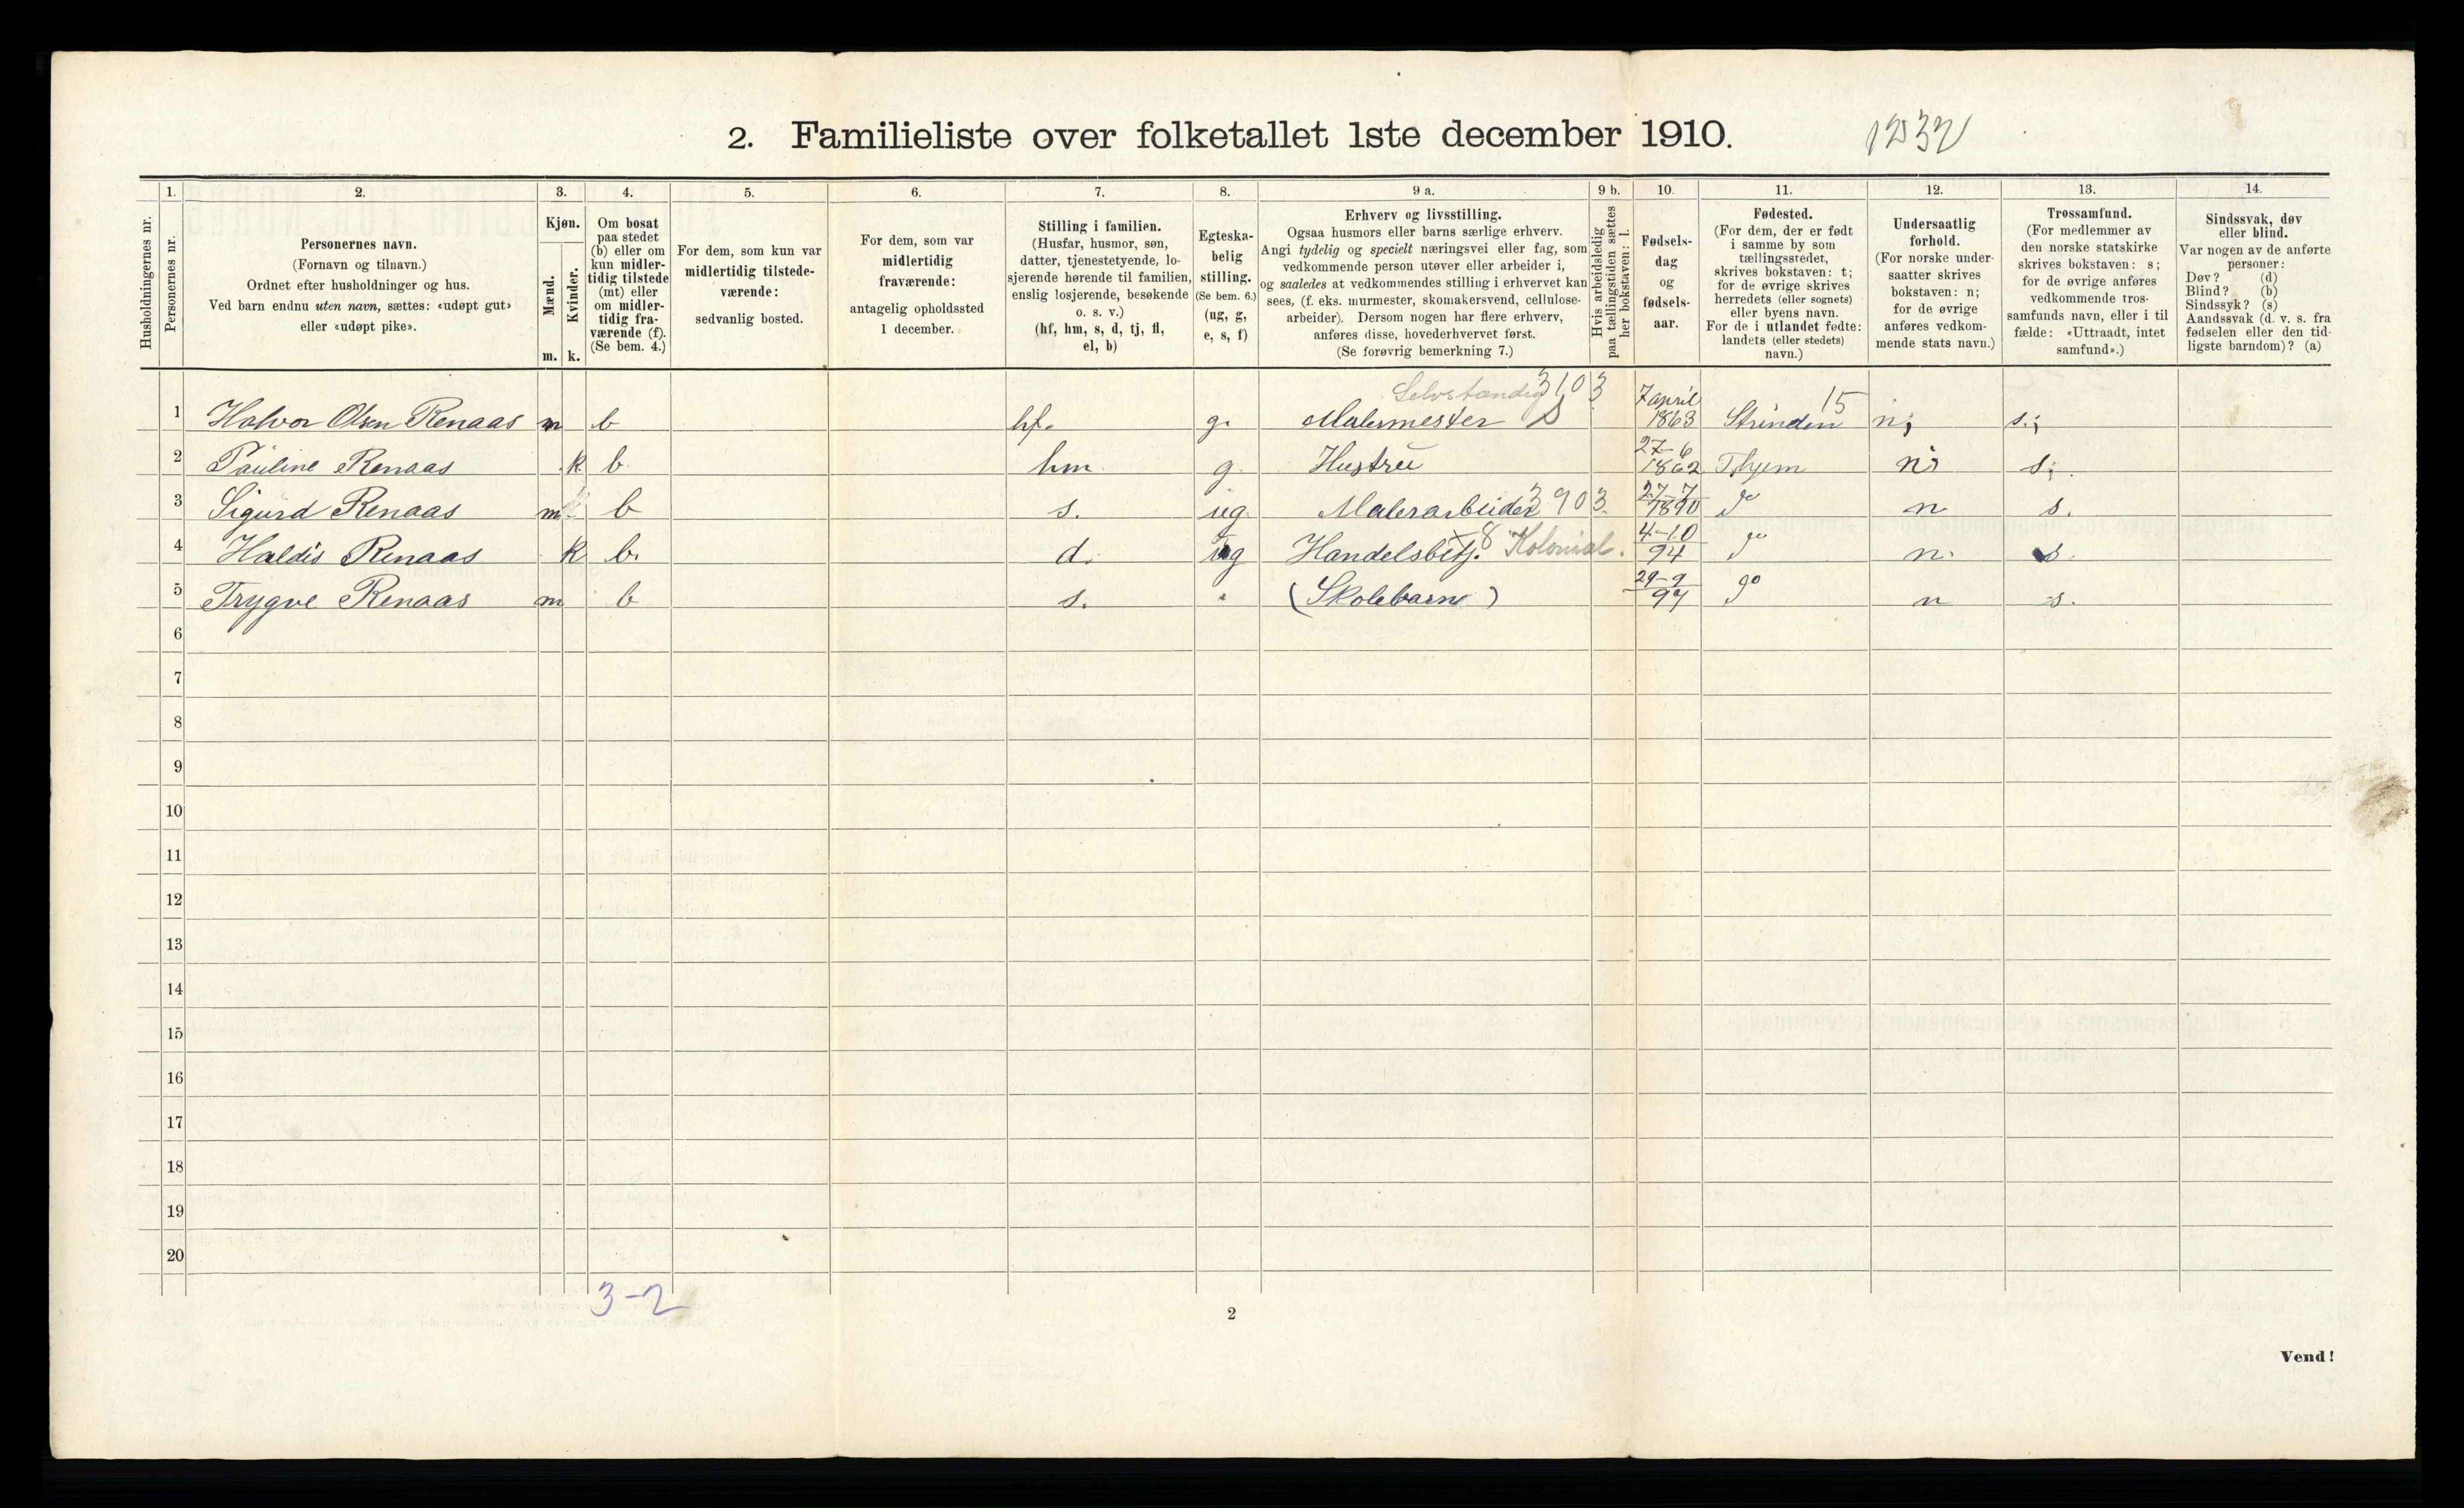 2. Familieliste over folketallet 1ste december 1910.
1232
Husholdningernes nr.
1.
Personernes nr.
2.
Personernes navn.
(Fornavn og tilnavn.)
Ordnet efter husholdninger og hus.
Ved barn endnu uten navn, sættes: «udøpt gut»
eller «udøpt pike».
3.
Kjøn.
Mænd.
Kvinder.
m. k.
4.
Om bosat
paa stedet
(b) eller om
kun midler-
tidig tilstede
(mt) eller
om midler-
tidig fra-
værende (f).
(Se bem. 4.)
5.
For dem, som kun var
midlertidig tilstede-
værende:
sedvanlig bosted.
6.
For dem, som var
midlertidig
fraværende:
antagelig opholdssted
1 december.
7.
Stilling i familien.
(Husfar, husmor, søn,
datter, tjenestetyende, lo-
sjerende hørende til familien,
enslig losjerende, besøkende
o. s. v.)
(hf, hm, s, d, tj, fl,
el, b)
8.
Egteska-
belig
stilling.
(Se bem. 6.)
(ug, g,
e, s, f)
9 a.
Erhverv og livsstilling.
Ogsaa husmors eller barns særlige erhverv.
Angi tydelig og specielt næringsvei eller fag, som
vedkommende person utøver eller arbeider i,
og saaledes at vedkommendes stilling i erhvervet kan
sees, (f. eks. murmester, skomakersvend, cellulose-
arbeider). Dersom nogen har flere erhverv,
anføres disse, hovederhvervet først.
(Se forøvrig bemerkning 7.)
9 b.
Hvis arbeidsledig
paa tællingstiden sættes
her bokstaven: l.
10.
Fødsels-
dag
og
fødsels-
aar.
11.
Fødested.
(For dem, der er født
i samme by som
tællingsstedet,
skrives bokstaven: t;
for de øvrige skrives
herredets (eller sognets)
eller byens navn.
For de i utlandet fødte:
landets (eller stedets)
navn.)
12.
Undersaatlig
forhold.
(For norske under-
saatter skrives
bokstaven: n;
for de øvrige
anføres vedkom-
mende stats navn.)
13.
Trossamfund.
(For medlemmer av
den norske statskirke
skrives bokstaven: s;
for de øvrige anføres
vedkommende tros-
samfunds navn, eller i til
fælde: «Uttraadt, intet
samfund».)
14.
Sindssvak, døv
eller blind.
Var nogen av de anførte
personer:
Døv? (d)
Blind? (b)
Sindssyk? (s)
Aandssvak (d. v. s. fra
fødselen eller den tid-
ligste barndom)? (a)
Selvstændig 3103 7 april 15
1 Halvor Olsen Renaas m b hf. g. Malermester S 1863 Strinden n; s.;
27-6
2 Pauline Renaas k b hm g. Hustru 1862 Thjem n; s;
27-7
3 Sigurd Renaas m b s. ug. Malerarbeider 3903. 1890 do n s.
4-10
4 Haldis Renaas k b. d. ug Handelsbetj. 8 Kolonial. 94 do n. s.
29-9
5 Trygve Renaas m b s. (Skolebarn) 97 do n s.
6
7
8
9
10
11
12
13
14
15
16
17
18
19
20
3-2
2
Vend!